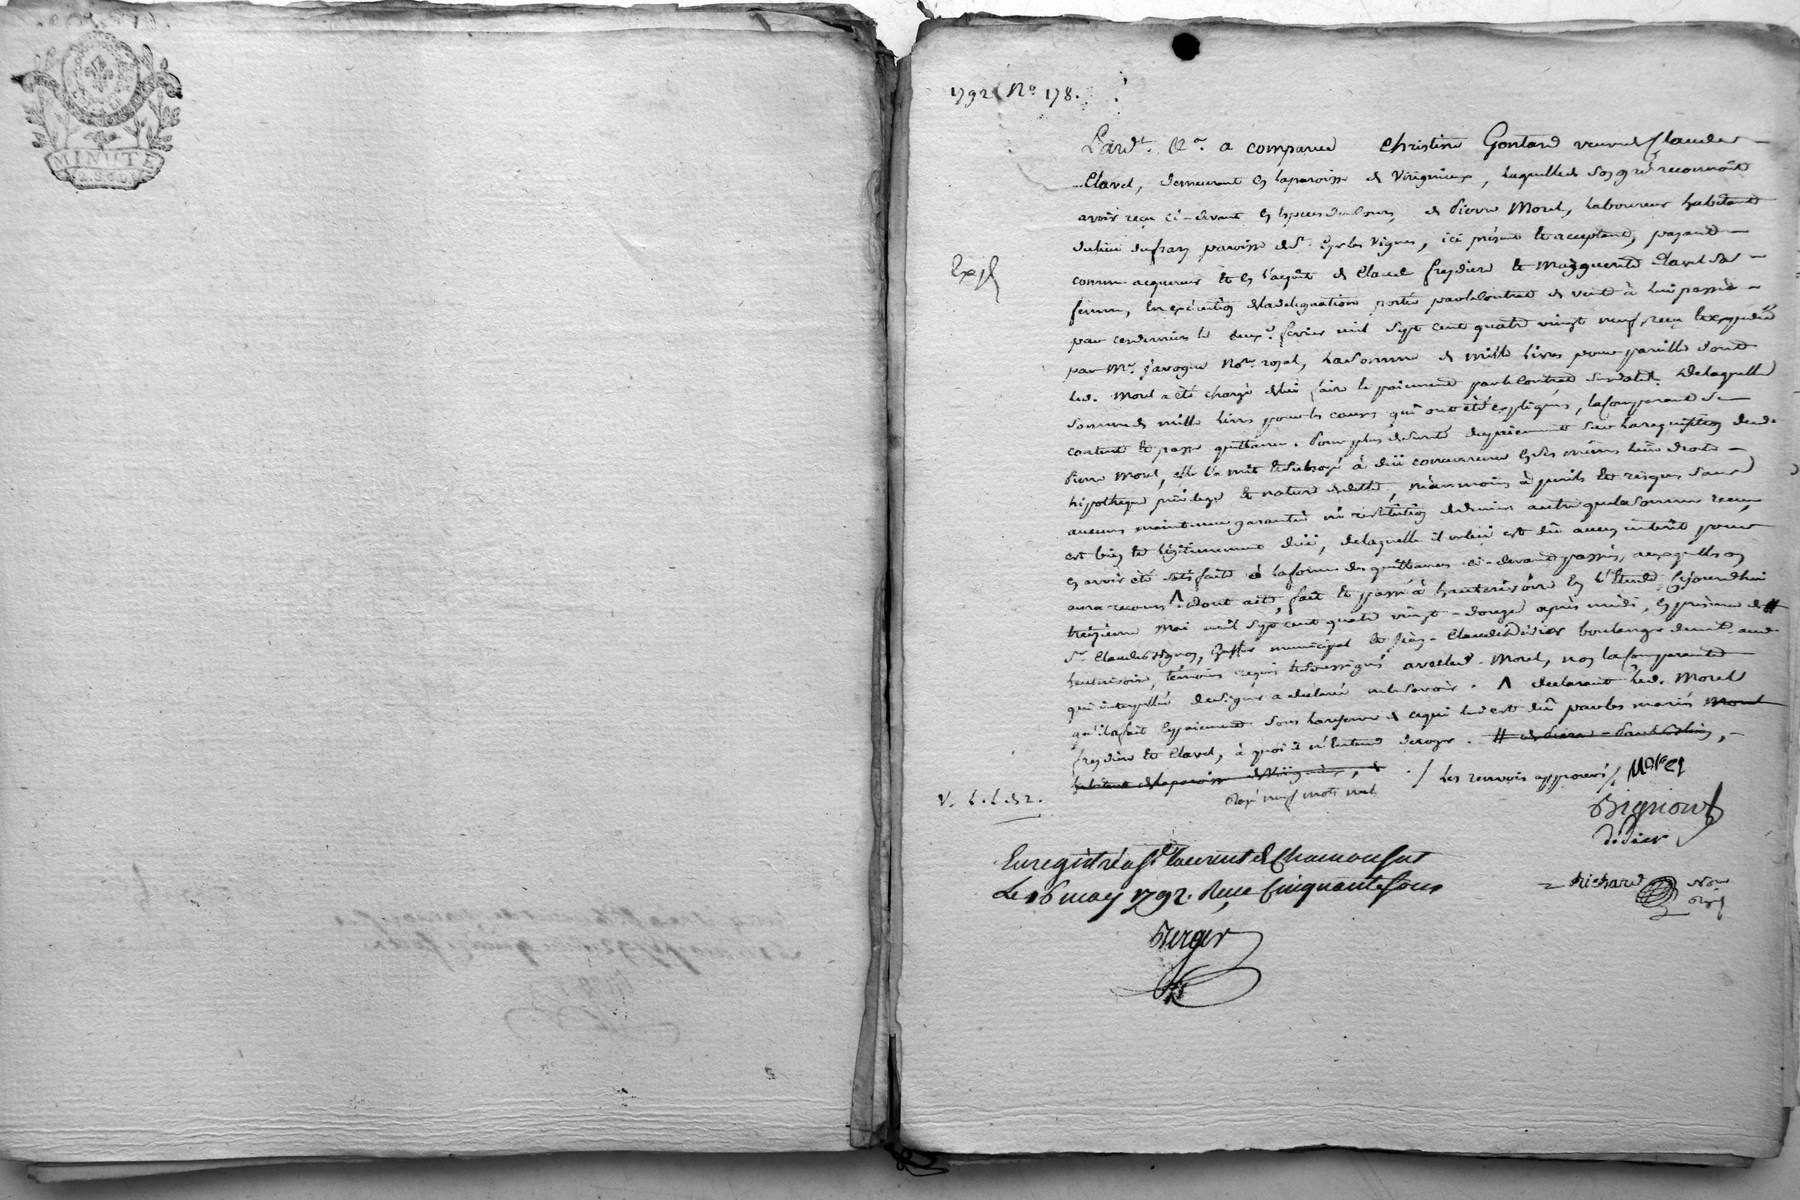 MINUTE
1792 No 178.
Pardt. &a. a comparue Christine Gontard veuve de Claude
Clavel, demeurant en la paroisse de Virignieux, laquelle de son gré reconnoit
avoir reçu ci-devant en especes de cours, de Pierre Morel, laboureur habitant
du lieu du paroisse de St. les Vignes, ici présent & acceptant, payant
Expé
comme acquereur & en l'acquit de Claude freydiere & Marguerite Clavel sa
femme, en exécution de la delegation portée par le contrat de vente à lui passée
par ces derniers le deux fevrier mil sept cent quatre vingt neuf, reçu & expedié
par Me. Javogue Nore. royal, la somme de mille livres pour pareille dont
led. Morel a été chargé de lui faire le paiement par le contrat susdaté. De laquelle
somme de mille livres pour les causes qui ont été expliquées, la comparante se
contente & passe quittance. Pour plus de sureté du paiement & sur la requisition dud.
Pierre Morel, elle l'a mit & subrogé à dûë concurrence en ses mêmes lieu droits
hypotheque privilege & nature de dette, néanmoins à perils & risques sans
aucune maintenue garantie ni restitution de deniers autre que la somme reçue
est bien & légitimement dûë, de laquelle il ne lui est dû aucun intérêt pour
en avoir été satisfaite à la forme des quittances ci-devant passées, auxquelles on
aura recours ^. dont acte, fait & passé à hauterivoire en l'Etude, cejourd'hui
treizieme Mai mil sept cent quatre vingt-douze après midi, en présence de #
Sr. Claude officier municipal & Jean-Claude Didier boulanger demt. aud.
hauterivoire, témoins requis & soussignés avec led. Morel, non la comparante
qui interpellée de signer a declaré ne le savoir. ^ declarant led. Morel
qu'il a fait le paiement sous la reserve de ce qui lui est dû par les mariés Morel
freydiere & Clavel, à quoi il n'entend deroger. # de Pierre
habitant de la paroisse de Virignieux, & ./. les renvois approuvés /. Morel
Rayé neuf mots nuls
V. L. L. 5 2.
Bignion
didier
Enregistré a St Laurent de Chamousset
Le 16 may 1792. Reçu Cinquante sous
Richard Nore Royl
Berger